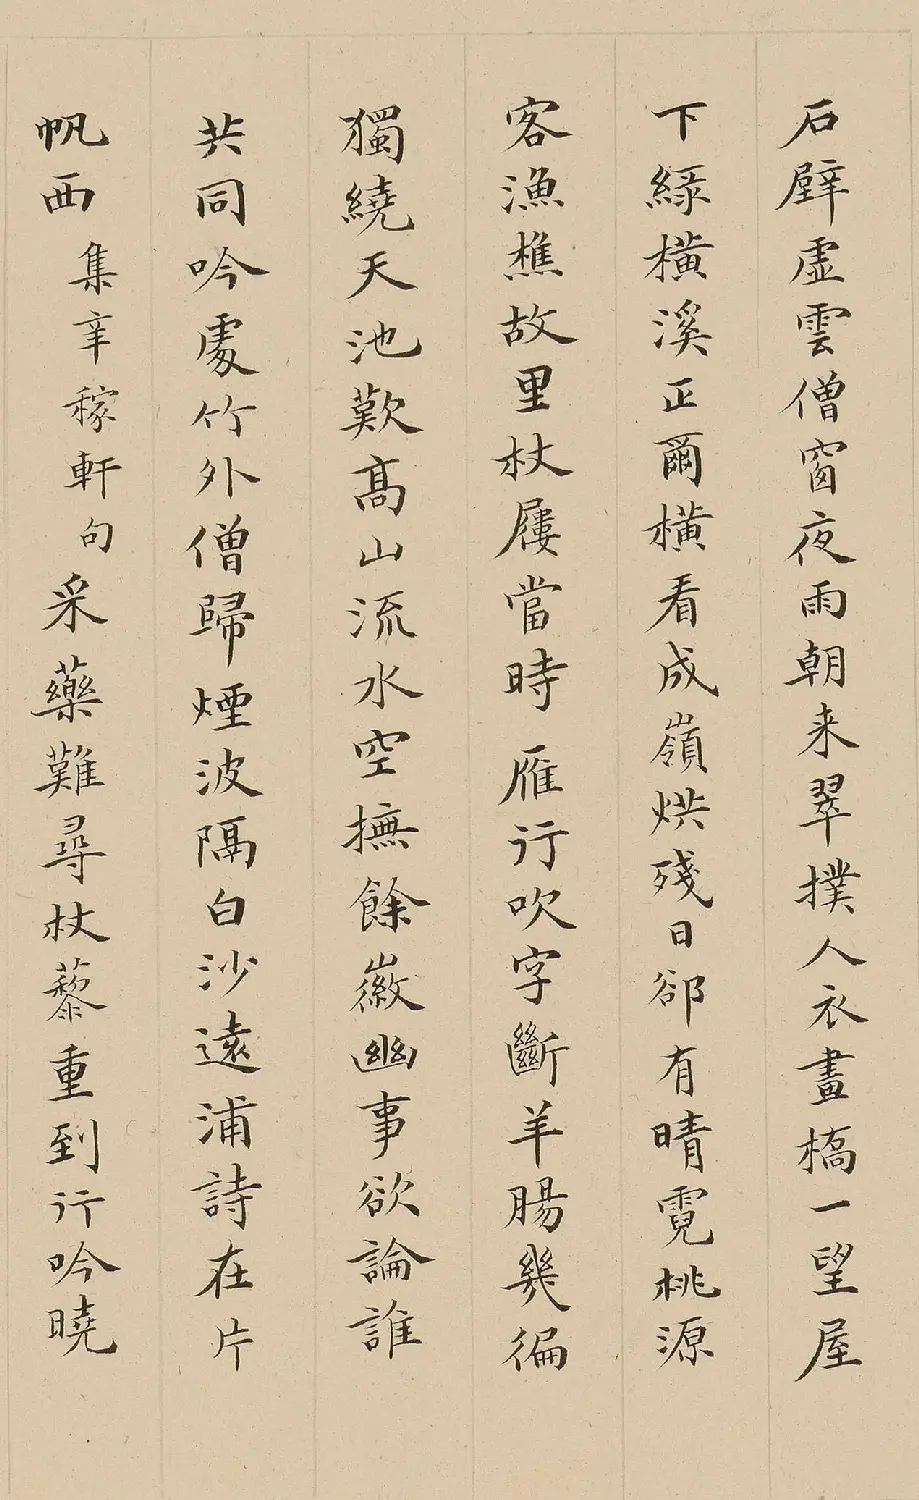 石壁虛雲僧窗夜雨朝来翠撲人衣畫橋一望屋
下緑橫溪正爾橫看成嶺烘殘日郤有晴霓桃源
客漁樵故里杖屨當時雁行吹字斷羊腸幾徧
獨繞天池歎高山流水空撫餘徽幽事欲論誰
共同吟處竹外僧歸煙波隔白沙遠浦詩在片
帆西集辛稼軒句采藥難尋杖藜重到行吟曉